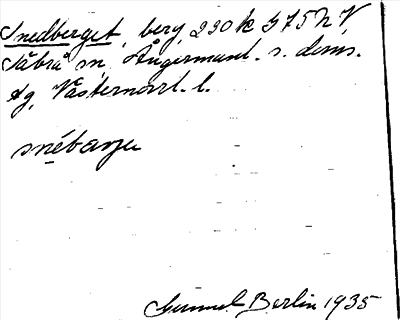 Snedberget, berg, 230 k 375 N V
Säbrå sn, Ångermanl. s. doms.
tg, Västernorrl. l.
snébarju
Gunnel Berlin 1935